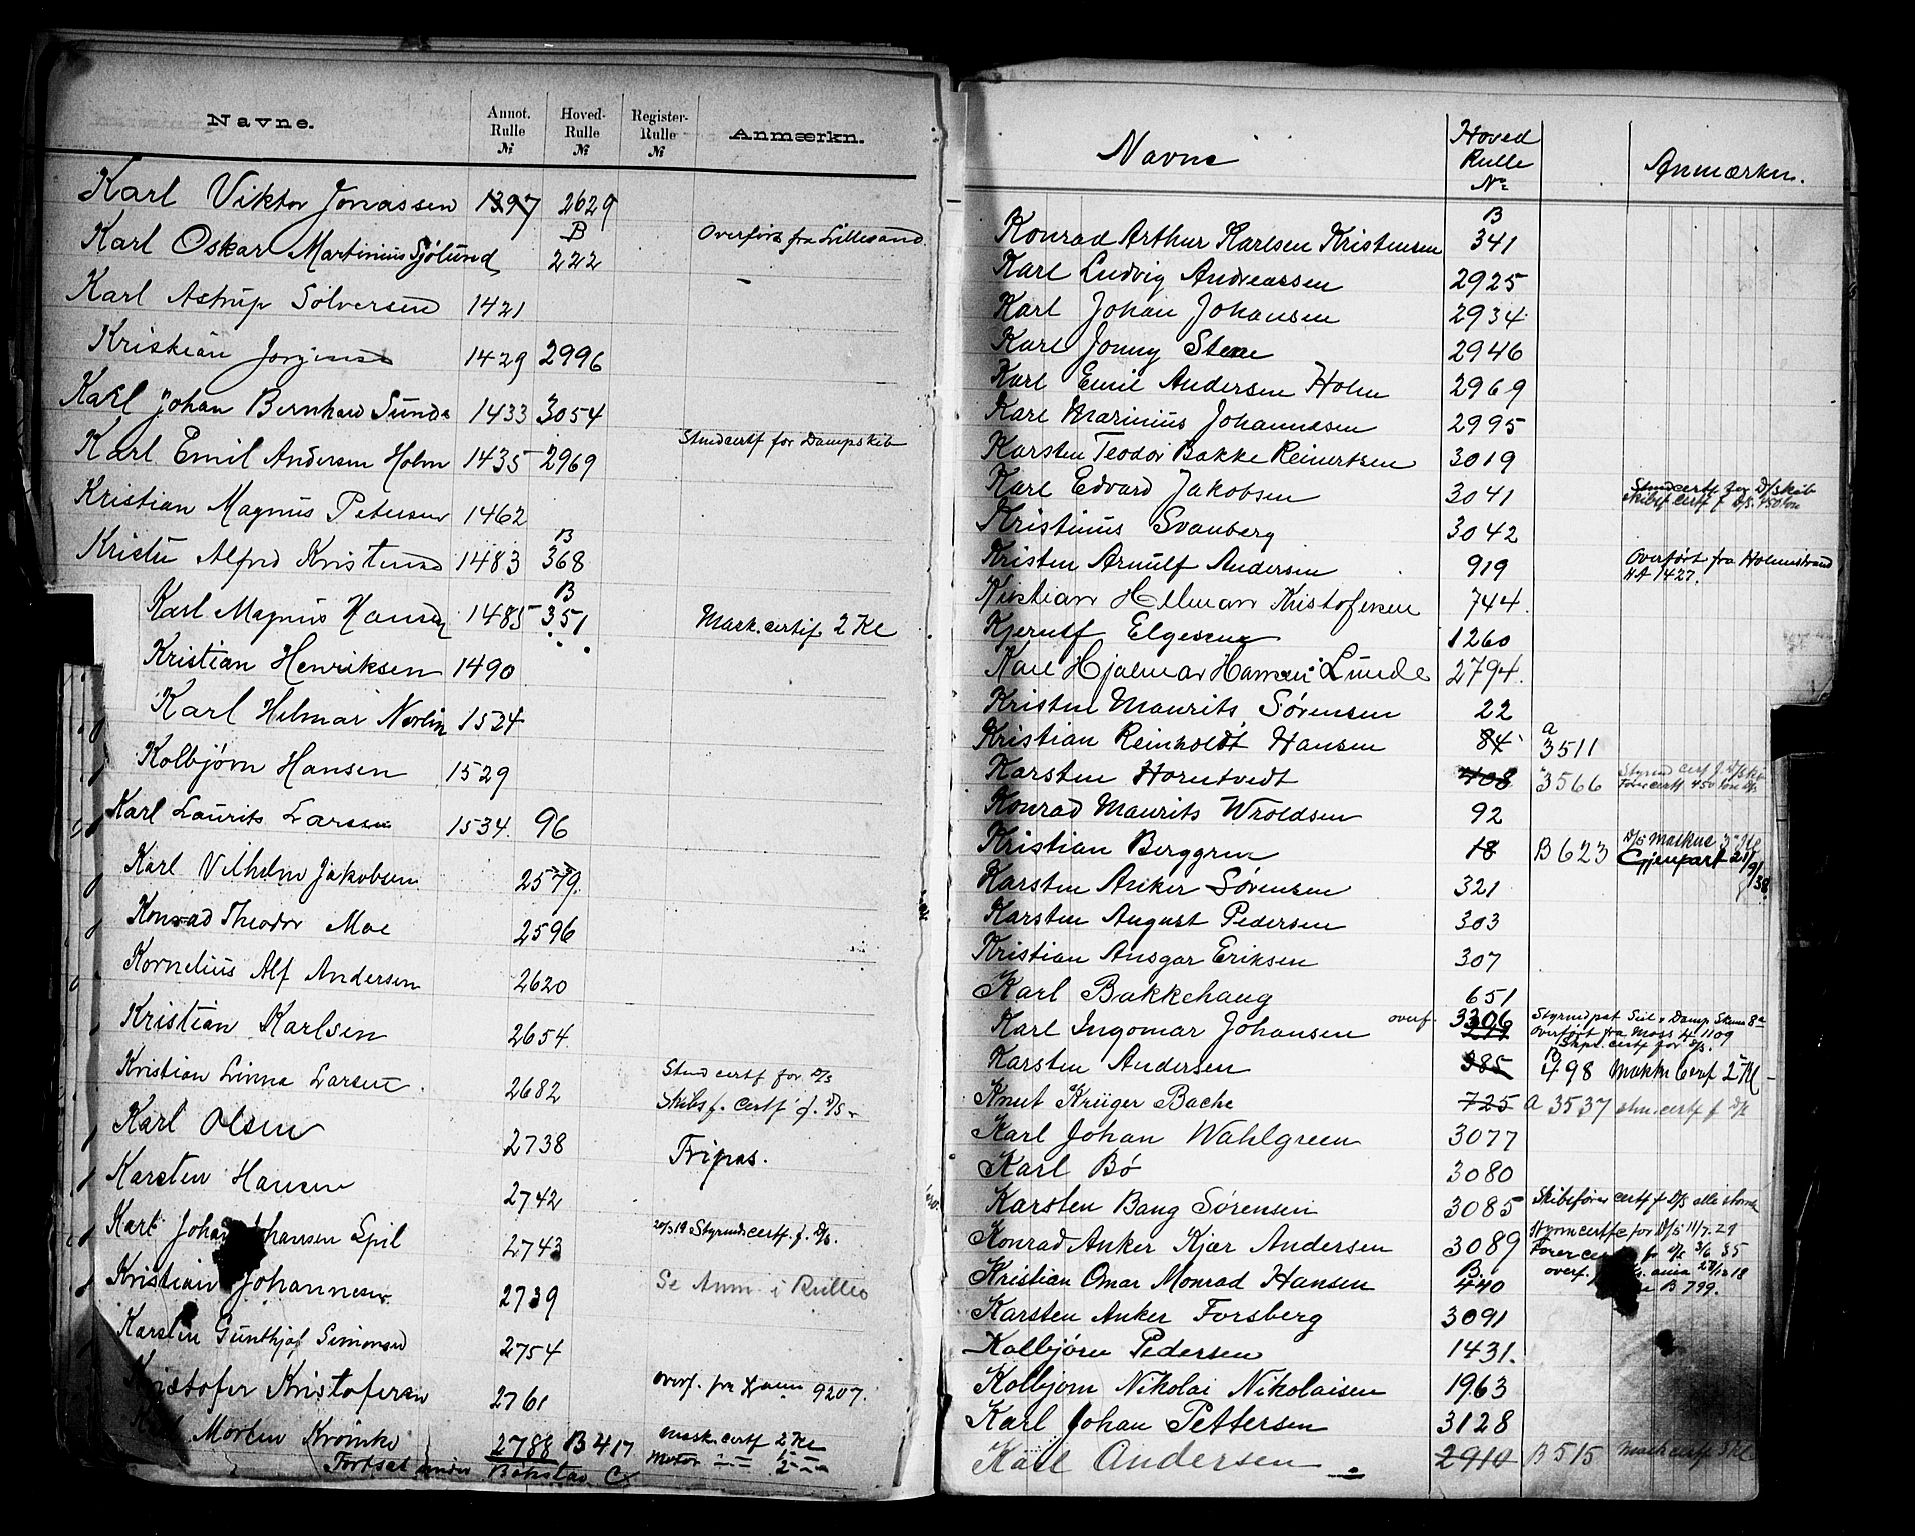 Navne.
Annot. Rulle № Hoved- Rulle № Register- Rulle № Anmærkn.
Karl Viktor Jonassen 1397 2629
Karl Oskar Martinius Sjölund B 222 Overført fra Lillesand
Karl Astrup Sölversen 1421
Kristian Jorgensen 1429 2996
Karl Johan Bernhard Sunde 1433 3054
Karl Emil Andersen Holm 1435 2969 Stmdcertf for Dampskib
Kristian Magnus Petersen 1462
Alfred Kristensen 1483 B 368
Karl Magnus Hansen 1485 B 351 Mask. certif. 2 Kl
Kristian Henriksen 1490
Karl Hilmar 1524
Kolbjørn Hansen 1529
Karl Laurits Larsen 1534. 96
Karl Vilhelm Jakobsen 2579.
Konrad Theodor Moe 2596
Kornelius Alf Andersen 2620
Kristian Karlsen 2654
Kristian Linna Larsen 2682 Stmd certf for D/S
Skibsf. certf f. D/S
Karl Olsen 2738 Fripas.
Karsten Hansen 2742
Karl Johan Johansen Spil 2743 20/3 19 Styrmdscertf. f. D/S.
Kristian Johannesen 2739 Se Anm i Rullen
Karsten Simonsen 2754
Kristofer Kristofersen 2761 overf. fra 9207.
Morten 2788 B 417 mask. certf 2 Kl
Motor
Fortsat under Bokstav C
Navne Hoved Rulle № Anmærkn.
Konrad Arthur Karlsen Kristensen B 341
Karl Ludvig Andreassen 2925
Karl Johan Johansen 2934
Karl Jonny Stene 2946
Karl Emil Andersen Holm 2969
Karl Marinius Johannesen 2995
Karsten Teodor Bakke Reinertsen 3019
Karl Edvard Jakobsen 3041 Stmdcertf for D/skib
Skibsf certf f D/S. 450 ton
Kristinus Svanberg 3042
Kristen Arnulf Andersen 919 Overført fra Holmestrand
HA 1427.
Kristian Helman Kristofersen 744
Kjerulf Elgesem 1260
Karl Hjalmar Hansen Lunde 2794.
Kristen Maurits Sørensen 22
Kristian Reinholdt Hansen 84 a 3511
Karsten Horntvedt 408 3566 Styrmd certf f. D/skib
Førercertf 450 tons D/S
Konrad Maurits Wroldsen 92
Kristian Berggren 18 B 623 D/S Maskne 3 Kl
Gjenpart 21/9/38.
Karsten Anker Sørensen 321
Karsten August Pedersen 303
Kristian Ansgar Eriksen 307
Karl Bakkehaug 651
Karl Ingomar Johansen overf. 3306 Styrmdpat Seil & Damp
overført fra Moss H 1109
Skps. certf for D/S.
Karsten Andersen 385 B 498 Maskn Certf 2 Kl
Knut Krüger Bache 725 a 3537 stm. certf f D/S
Karl Johan Wahlgreen 3077
Karl Bö 3080
Karsten Bang Sørensen 3085 Skibsfører certf f D/S alle
Konrad Anker Kjær Andersen 3089 Styrm certf for D/S 11/7. 29
Fører 3/6 35
Kristian Omar Monrad Hansen B. 440 overf. B 799.
Karsten Anker Forsberg 3091
Kolbjørn Pedersen 1431.
Kolbjorn Nikolai Nikolaisen 1963
Karl Johan Pettersen 3128
Karl Andersen 2910 B 515 Mask certf 3 Kl